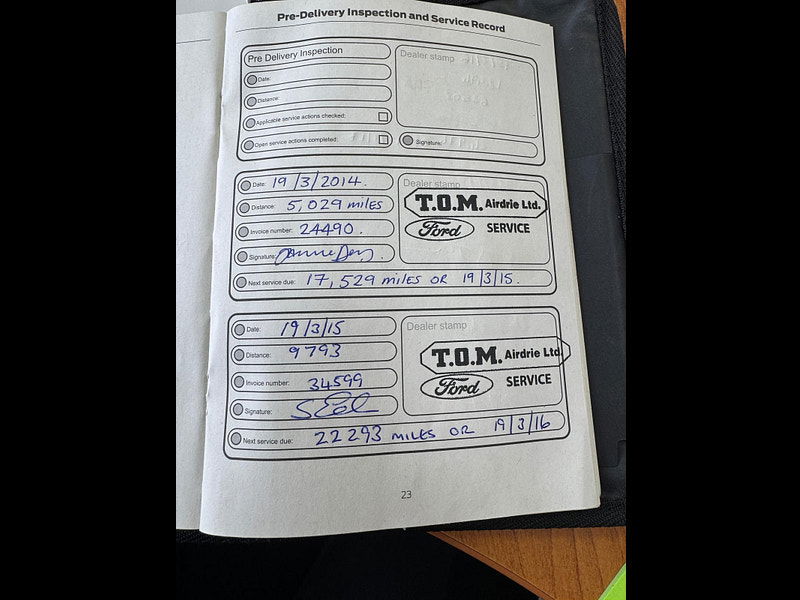 Pre-Delivery Inspection and Service Record
Pre Delivery Inspection
Date:
Distance:
Applicable service actions checked:
Open service actions completed:
Dealer stamp
Signature:
Date: 19/3/2014.
Distance: 5,029 MILES
Invoice number: 24490.
Signature:
Next service due: 17,529 MILES OR 19/3/15.
Dealer stamp
T.O.M. Airdrie Ltd.
Ford SERVICE
Date: 19/3/15
Distance: 9793
Invoice number: 34599
Signature:
Next service due: 22293 MILES OR 19/3/16
Dealer stamp
T.O.M. Airdrie Ltd.
Ford SERVICE
23